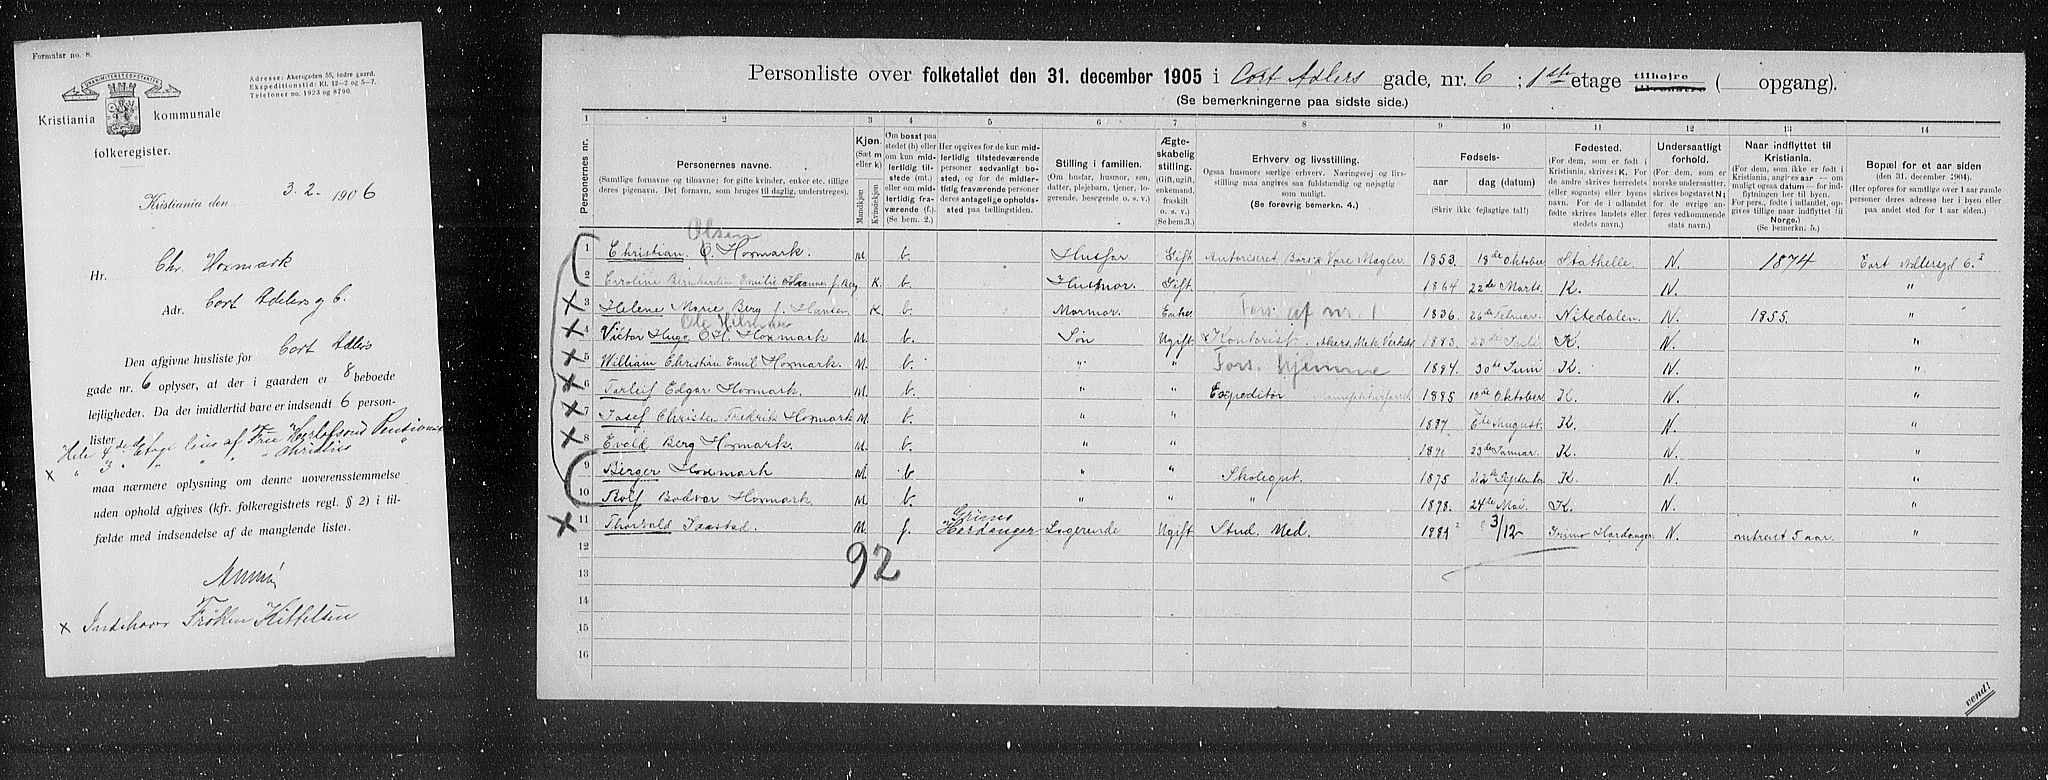 Formular no. 8.
UNANIMITER ET CONSTANTER
Kristiania kommunale
folkeregister.
Adresse: Akersgaden 55, indre gaard.
Ekspeditionstid: Kl. 12–2 og 5–7.
Telefoner no. 1923 og 8790.
Kristiania den 3. 2. 1906
Hr. Chr. Hoxmark
Adr. Cort Adelersg 6.
Den afgivne husliste for Cort Adlers
gade nr. 6 oplyser, at der i gaarden er 8 beboede
lejligheder. Da der imidlertid bare er indsendt 6 person-
lister
Hele 4de Etage leies af Frue Herlofsons Pensionat
× " 3 " " " " Christies "
maa nærmere oplysning om denne uoverensstemmelse
uden ophold afgives (kfr. folkeregistrets regl. § 2) i til-
fælde med indsendelse af de manglende lister.
× Indehaver Frøken Kittelsen
Personliste over folketallet den 31. december 1905 i Cort Adlers gade, nr. 6 ; 1ste etage tilhøjre tilvenstre ( opgang).
(Se bemerkningerne paa sidste side.)
1 2 3 4 5 6 7 8 9 10 11 12 13 14
Personernes nr.
Personernes navne.
(Samtlige fornavne og tilnavne; for gifte kvinder, enker etc. tillige deres pigenavn. Det fornavn, som bruges til daglig, understreges).
Kjøn. (Sæt m eller k). Mandkjøn Kvindekjøn
Om bosat paa stedet (b) eller om kun midlertidig tilstede (mt.) eller om midlertidig fraværende (f.). (Se bem. 2.)
Her opgives for de kun midlertidig tilstedeværende personers sedvanlig bosted, og for de midlertidig fraværende personer deres antagelige opholdssted paa tællingstiden.
Stilling i familien. (Om husfar, husmor, søn, datter, plejebarn, tjener, logerende, besøgende o. s. v.)
Ægteskabelig stilling. (Gift, ugift, enkemand, fraskilt o. s. v.) (Se bem. 3.)
Erhverv og livsstilling. Ogsaa husmors særlige erhverv. Næringsvej og livsstilling maa angives saa fuldstændig og nøjagtig som muligt. (Se forøvrig bemerkn. 4.)
Fødsels- aar dag (datum) (Skriv ikke fejlagtige tal!)
Fødested. (For dem, som er født i Kristiania, skrives: K. For de andre skrives herredets (eller sognets) eller byens navn. For de i udlandet fødte skrives landets eller stedets navn.)
Undersaatligt forhold. (For norske undersaatter, skrives bogstavet N; for de øvrige anføres vedkommende stats navn.)
Naar indflyttet til Kristiania. (For dem, som ikke er født i Kristiania, angives aar — om muligt ogsaa datum — for indflytningen her til byen. For pers., fødte i udlandet, opgives tillige naar indflyttet til Norge.) (Se bemerkn. 5.)
Bopæl for et aar siden (den 31. december 1904). (Her opføres for samtlige over 1 aar gamle personer deres adresse her i byen eller paa andet sted for 1 aar siden.)
Olsen
1 Christian O Hoxmark. M b. Husfar Gift Autoriseret Børs & Vare Mægler 1853 18de Oktober Stathelle N. 1874 Cort Adlersgd 6.
2 Caroline Bernhardin Emilie Hoxmark f. Berg K. b. Husmor. Gift. 1864 22de Marts K. N. "
3 Helene Marie Berg f. Hansen K b. Mormor. Enke Fors. af nr. 1 1836 26de Februar. Nitedalen. N. 1855. "
4 Victor Hugo O.H. Hoxmark M. b. Søn Ugift Kontorist Akers Mek Verksted 1883. 28de Juli K. N.
5 William Christian Emil Hoxmark. M. b. " " Fors. hjemme 1894 30te Juni K N.
6 Torleif Edgar Hoxmark. M. b. " " Expeditør 1885 10de Oktober K. N.
7 Josef Christen Fredrik Hoxmark M. b. " " August. K. N.
8 Evald Berg Hoxmark. M. b. " " 23de Januar. K. N.
9 Birger Hoxmark M b " " Skolegut. 22de September K. N.
10 Rolf Bodvar Hoxmark M. b. " " " 1898. 24de Mai. K. N. "
11 Thorvald Jaastad. M. f. Grimo Hardanger Logerende Ugift Stud. Med. 1881 3/12 Grimo Hardanger N. omtrent 5 aar. "
12
92
13
14
15
16
vend!